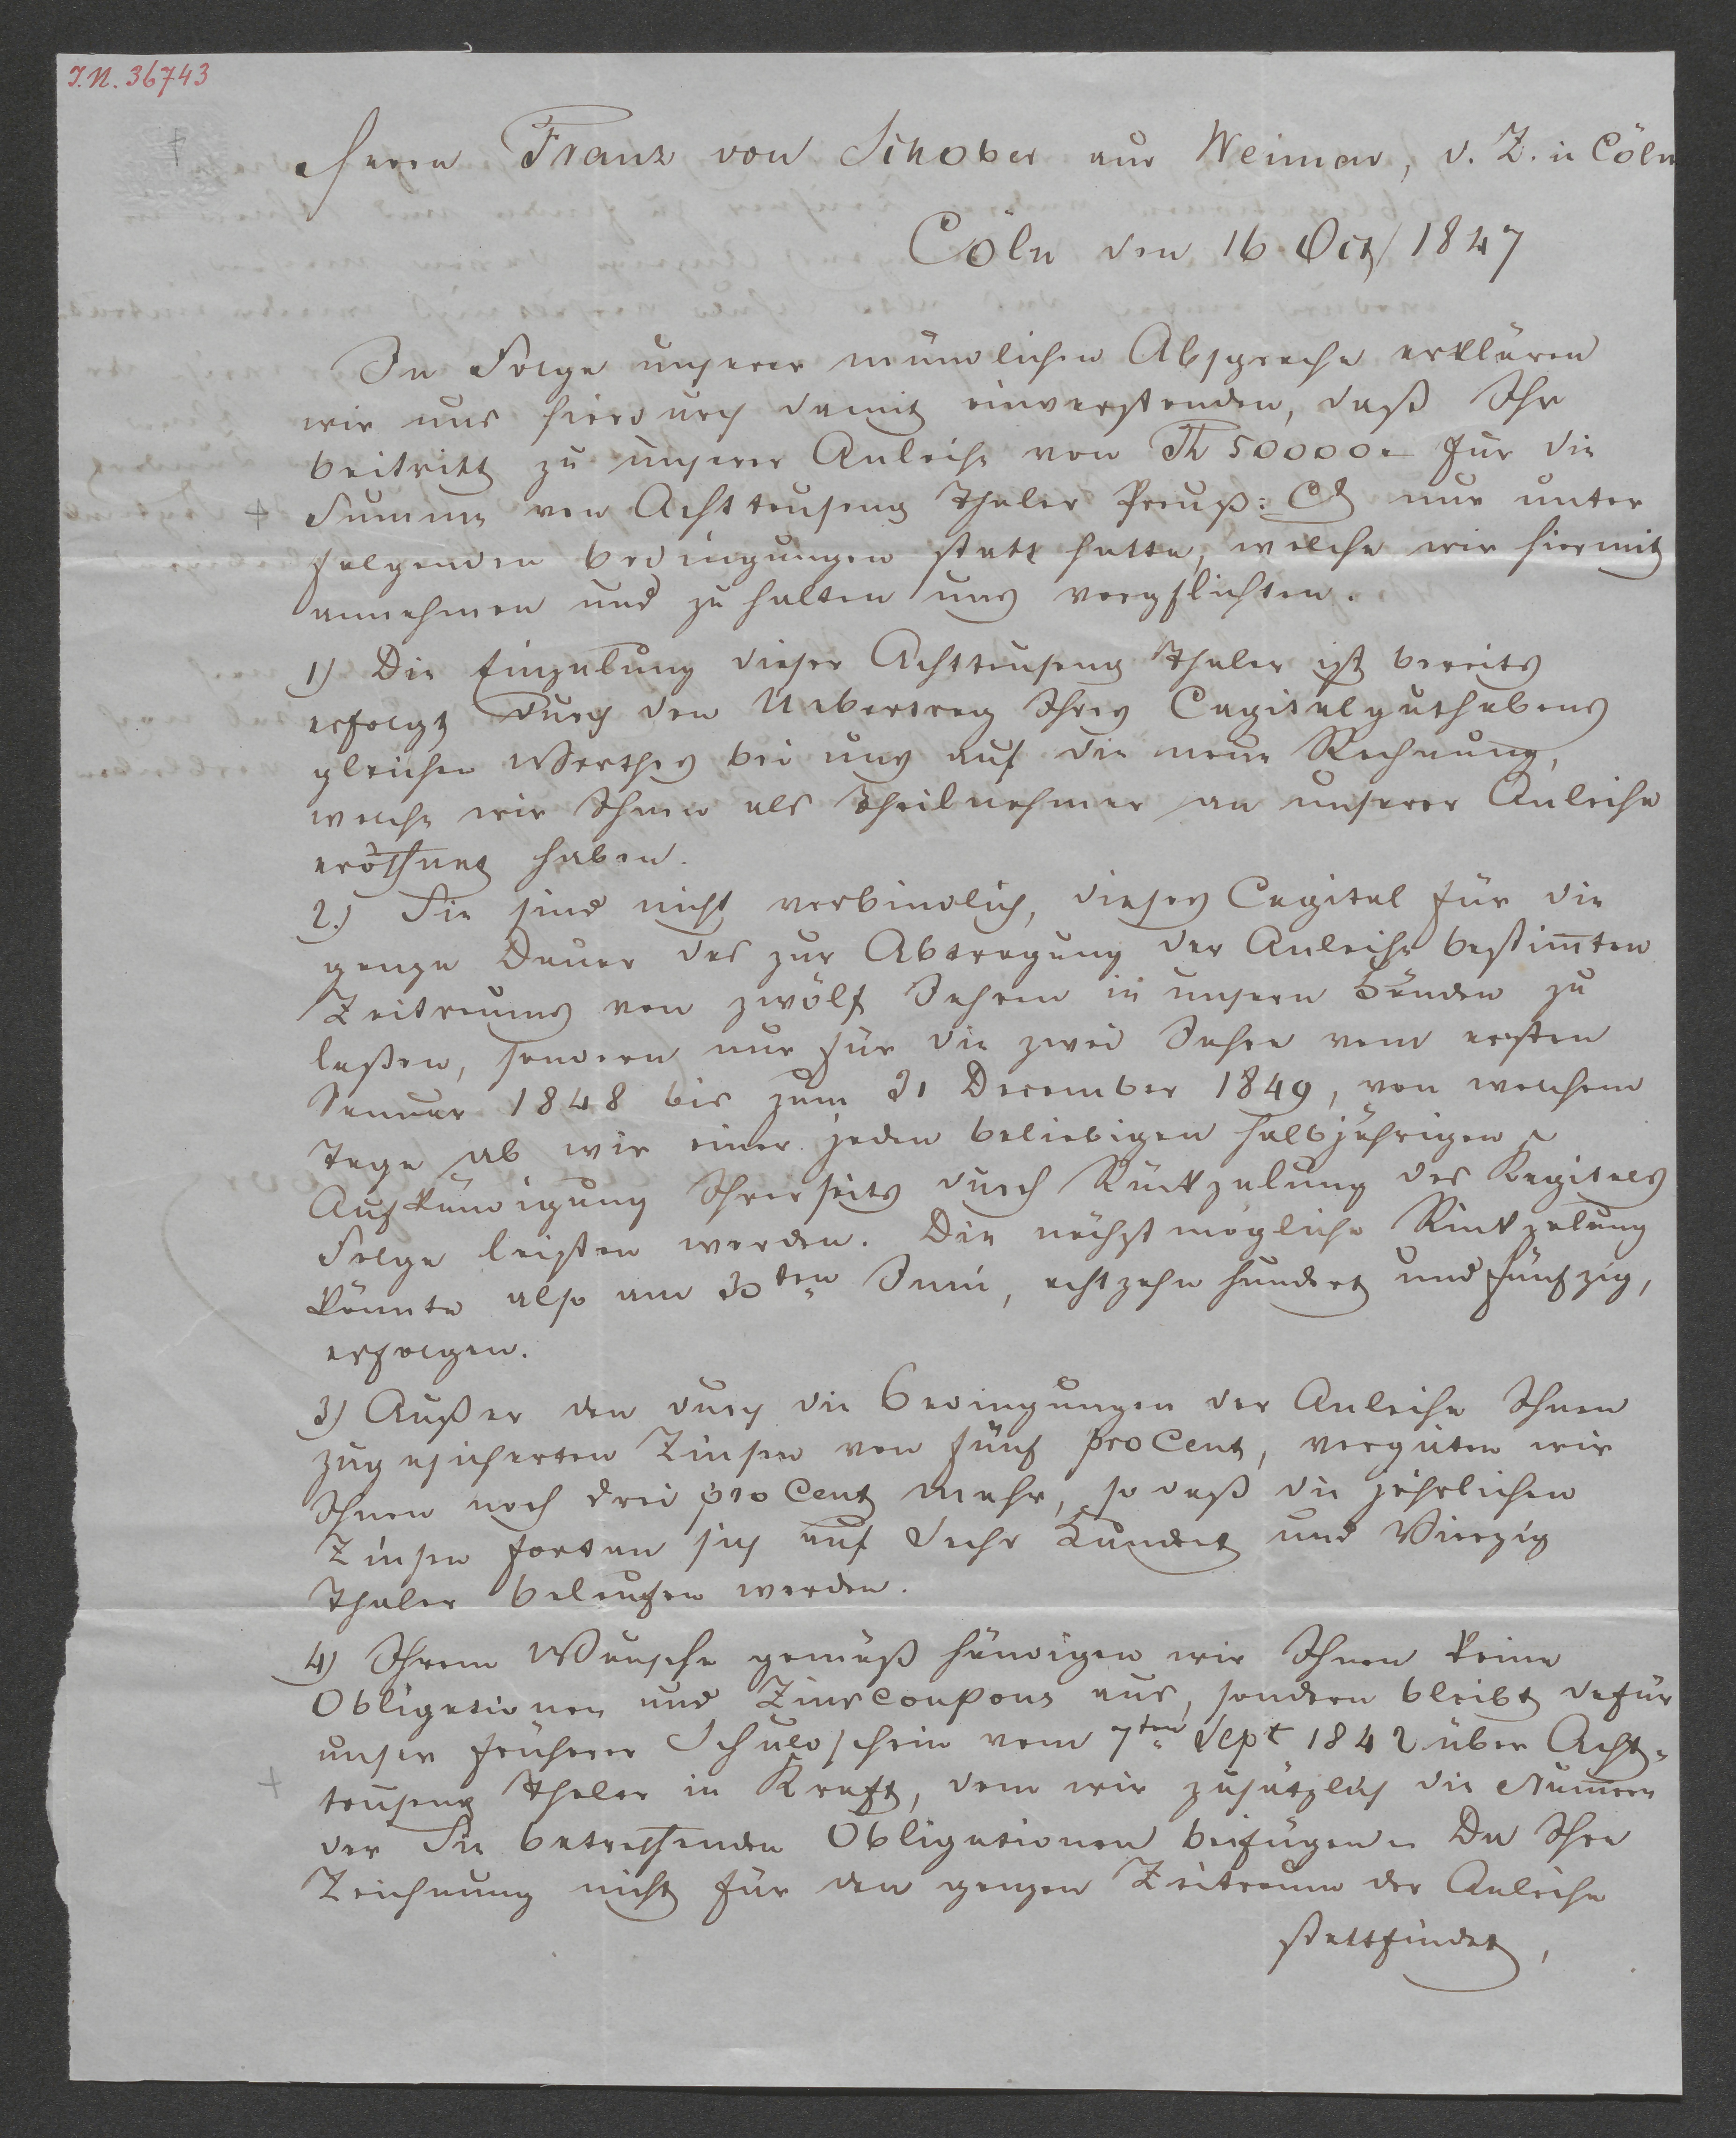 I.N. 36743
Herrn Franz von Schober aus Weimar, d. Z. in Cöln
Cöln den 16 Oct 1847
In Folge unserer mündlichen Absprache erklären
wir uns hierdurch damit einverstanden, daß Ihr
beitritt zu unserer Anleihe von Th 50000 für die
+ Summe von Achttausend Thaler Preuß: Ct nur unter
folgenden bedingungen statt hatte, welche wir hiermit
annehmen und zu halten uns verpflichten.
1) Die Einzalung dieser Achttausend Thaler ist bereits
erfolgt durch den Uebertrag Ihres Capitalguthabens
gleichen Werthes bei uns auf die neue Rechnung,
welche wir Ihnen als Theilnehmer an unserer Anleihe
eröffnet haben.
2.) Sie sind nicht verbindlich, dieses Capital für die
ganze Dauer des zur Abtragung der Anleihe bestim̅ten
Zeitraums von zwölf Jahren in unsern Händen zu
laßen, sondern nur für die zwei Jahre vom ersten
Januar 1848 bis zum 31 December 1849, von welchem
Tage ab wir einer jeden beliebigen halbjährigen
Aufkündigung Ihrerseits durch Rückzalung des Kapitals
Folge leisten werden. Die nächstmögliche Rückzalung
könnte also am 30ten Juni, achtzehn hundert und fünfzig,
erfolgen.
3) Außer den durch die bedingungen der Anleihe Ihnen
zugesicherten Zinsen von fünf pro Cent, vergüten wir
Ihnen noch drei pro Cent mehr, so daß die jährlichen
Zinsen fortan sich auf Sechs Hundert und Vierzig
Thaler belaufen werden.
4) Ihrem Wunsche gemäß händigen wir Ihnen keine
Obligationen und Zinscoupons aus, sondern bleibt dafür
unser früherer Schuldschein vom 7ten Sept 1842 über Acht-
+ tausend Thaler in Kraft, dem wir zusätzlich die Num̅ern
der Sie betreffenden Obligationen beifügen. Da Ihre
Zeichnung nicht für den ganzen Zeitraum der Anleihe
stattfindet,